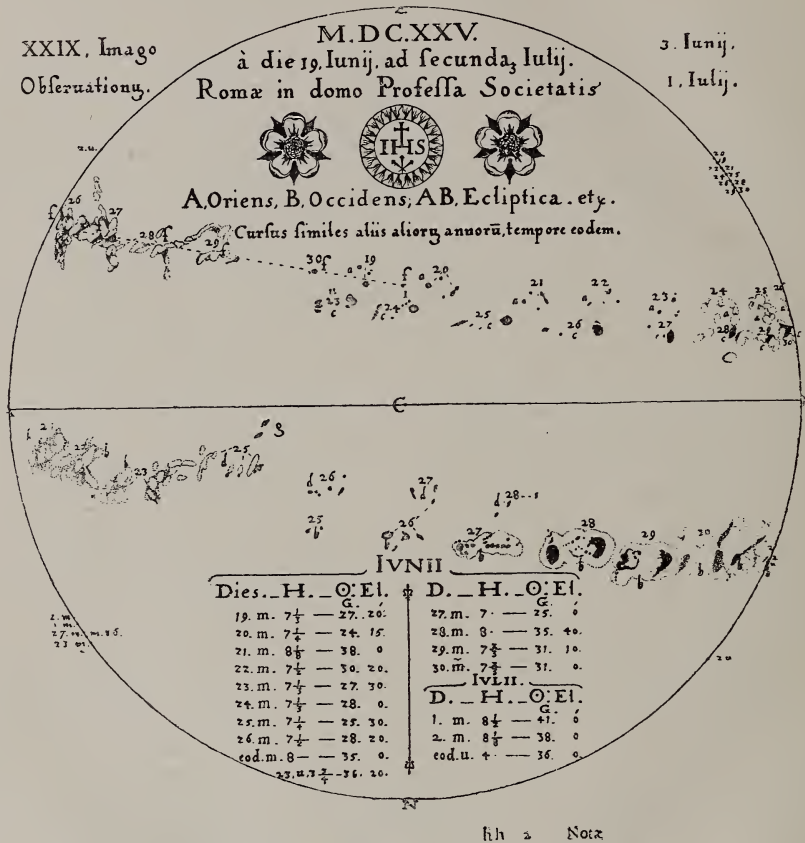 XXIX. Imago
Obſeruationʒ.
M.DC.XXV.
à die 19. Iunij. ad ſecundaʒ Iulij.
Romæ in domo Profeſſa Societatis
3. Iunij.
1. Iulij.
IHS
A, Oriens, B, Occidens; AB, Ecliptica. etʒ.
Curſus ſimiles aliis aliorʒ annorū, tempore eodem.
z.u.
26 27 28 29 30 19 20 21 22 23 24 25
23 24 25 26 27 28 29 30
C
S
23 25
26 27 28
25 26 27 28 29 30
IVNII
Dies. H. ☉: El.
G.
19. m. 7 1/3 — 27. 20.
20. m. 7 1/4 — 24. 15.
21. m. 8 1/8 — 38. 0
22. m. 7 1/2 — 30. 20.
23. m. 7 1/3 — 27. 30.
24. m. 7 1/3 — 28. 0.
25. m. 7 1/4 — 25. 30.
26. m. 7 1/2 — 28. 20.
eod. m. 8 — 35. 0.
23. u. 3 3/4 - 36. 20.
D. H. ☉: El.
G.
27. m. 7. — 25. 0
28. m. 8. — 35. 40.
29. m. — 31. 10.
30. m. — 31. 0.
IVLII.
D. H. ☉: El.
G.
1. m. 8 1/2 — 41. 0
2. m. 8 1/8 — 38. 0
eod. u. 4. — 36. 0.
2 u
N
hh 2 Notæ